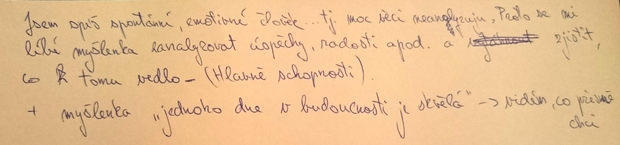 Jsem spíš spontánní, emotivní člověk... tj moc věcí neanalyzuju, Proto se mi
líbí myšlenka zanalyzovat úspěchy, radosti apod. a zjistit,
co k tomu vedlo – (Hlavně schopnosti).
+ myšlenka „jednoho dne v budoucnosti je skvělá" -> vidím, co přesně
chci